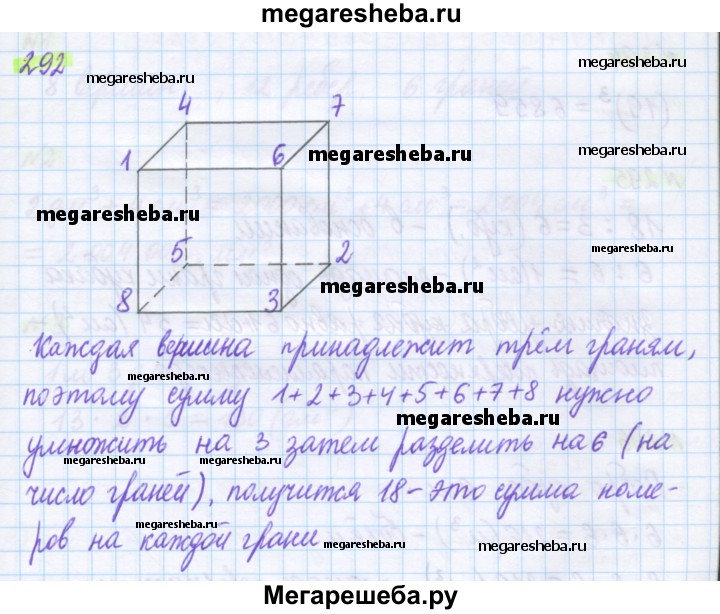 megaresheba.ru
292
megaresheba.ru
megaresheba.ru
4
7
1
6
megaresheba.ru
megaresheba.ru
5
2
megaresheba.ru
8
3
Каждая вершина принадлежит трём граням,
megaresheba.ru
поэтому сумму 1+2+3+4+5+6+7+8 нужно
megaresheba.ru
умножить на 3 затем разделить на 6 (на
megaresheba.ru
число граней), получится 18 - это сумма номе-
megaresheba.ru
ров на каждой грани
megaresheba.ru
megaresheba.ru
megaresheba.ru
Мегарешеба.ру